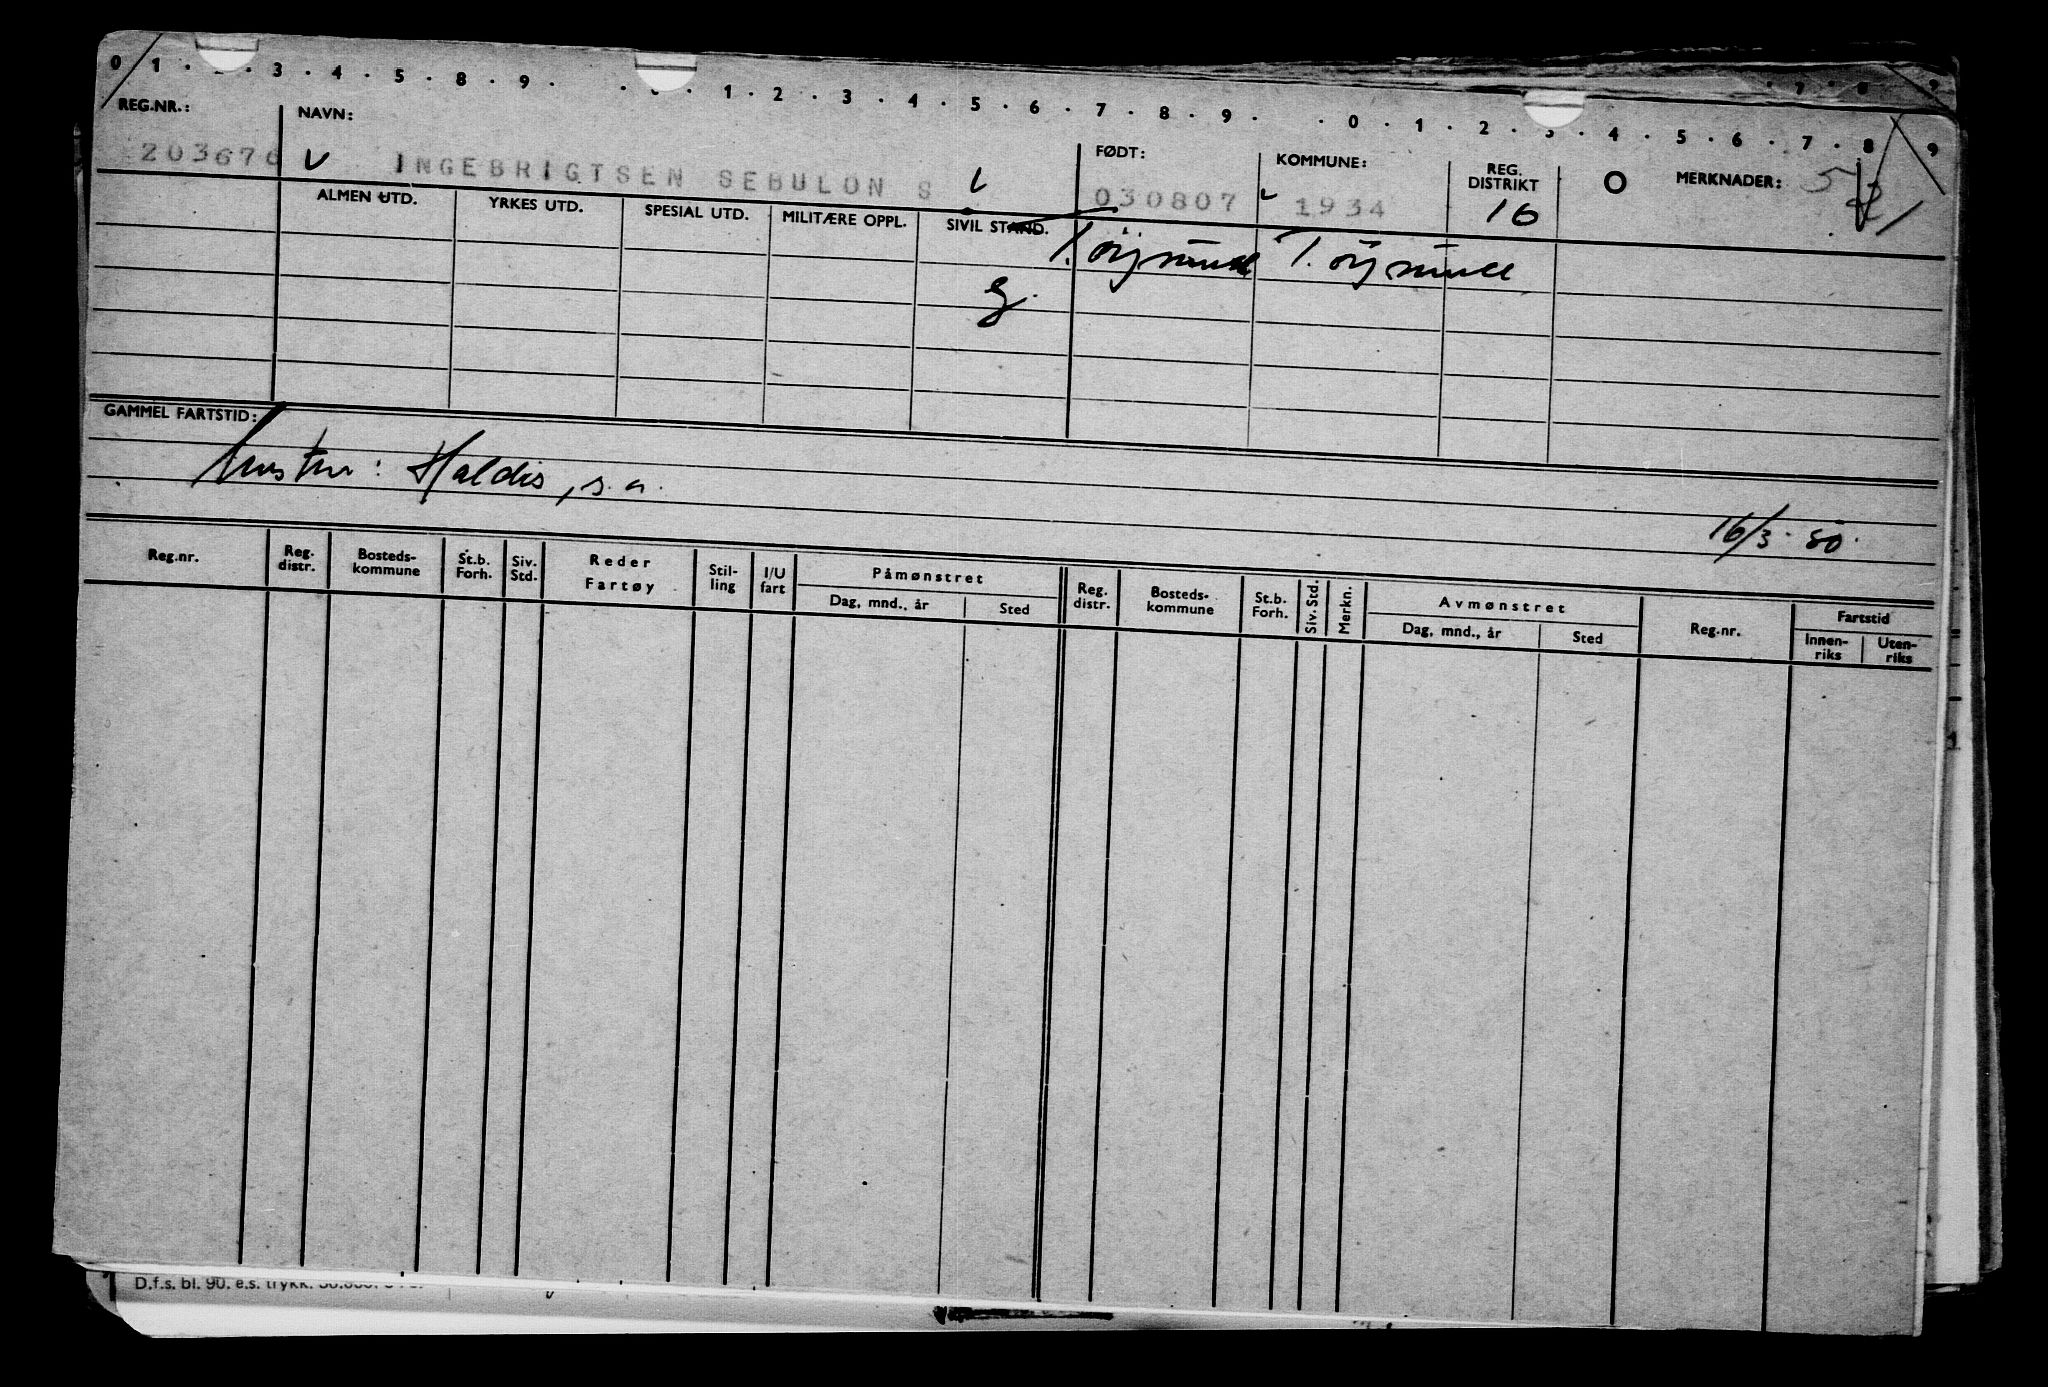 0 1 · 2 · 3 · 4 · 5 · 8 · 9 · · 0 · 1 · 2 · 3 · 4 · 5 · 6 · 7 · 8 · 9 · · 0 · 1 · 2 · 3 · 4 · 5 · 6 · 7 · 8 · 9
REG.NR.: NAVN: FØDT: KOMMUNE: REG. DISTRIKT O MERKNADER:
203676 INGEBRIGTSEN SEBULON S 030807 1934 16
ALMEN UTD. YRKES UTD. SPESIAL UTD. MILITÆRE OPPL. SIVIL STAND.
T. øysund T. øysund
g.
GAMMEL FARTSTID:
hustru: Haldis, s.a.
16/3 · 50 ·
Reg.nr. Reg. distr. Bosteds-kommune St.b. Forh. Siv. Std. Reder Fartøy Stil-ling I/U fart Påmønstret Reg. distr. Bosteds-kommune St.b. Forh. Siv. Std. Merkn. Avmønstret Reg.nr. Fartstid
Dag, mnd., år Sted Dag, mnd., år Sted Innen-riks Uten-riks
D.f.s. bl. 90. e.s. trykk.